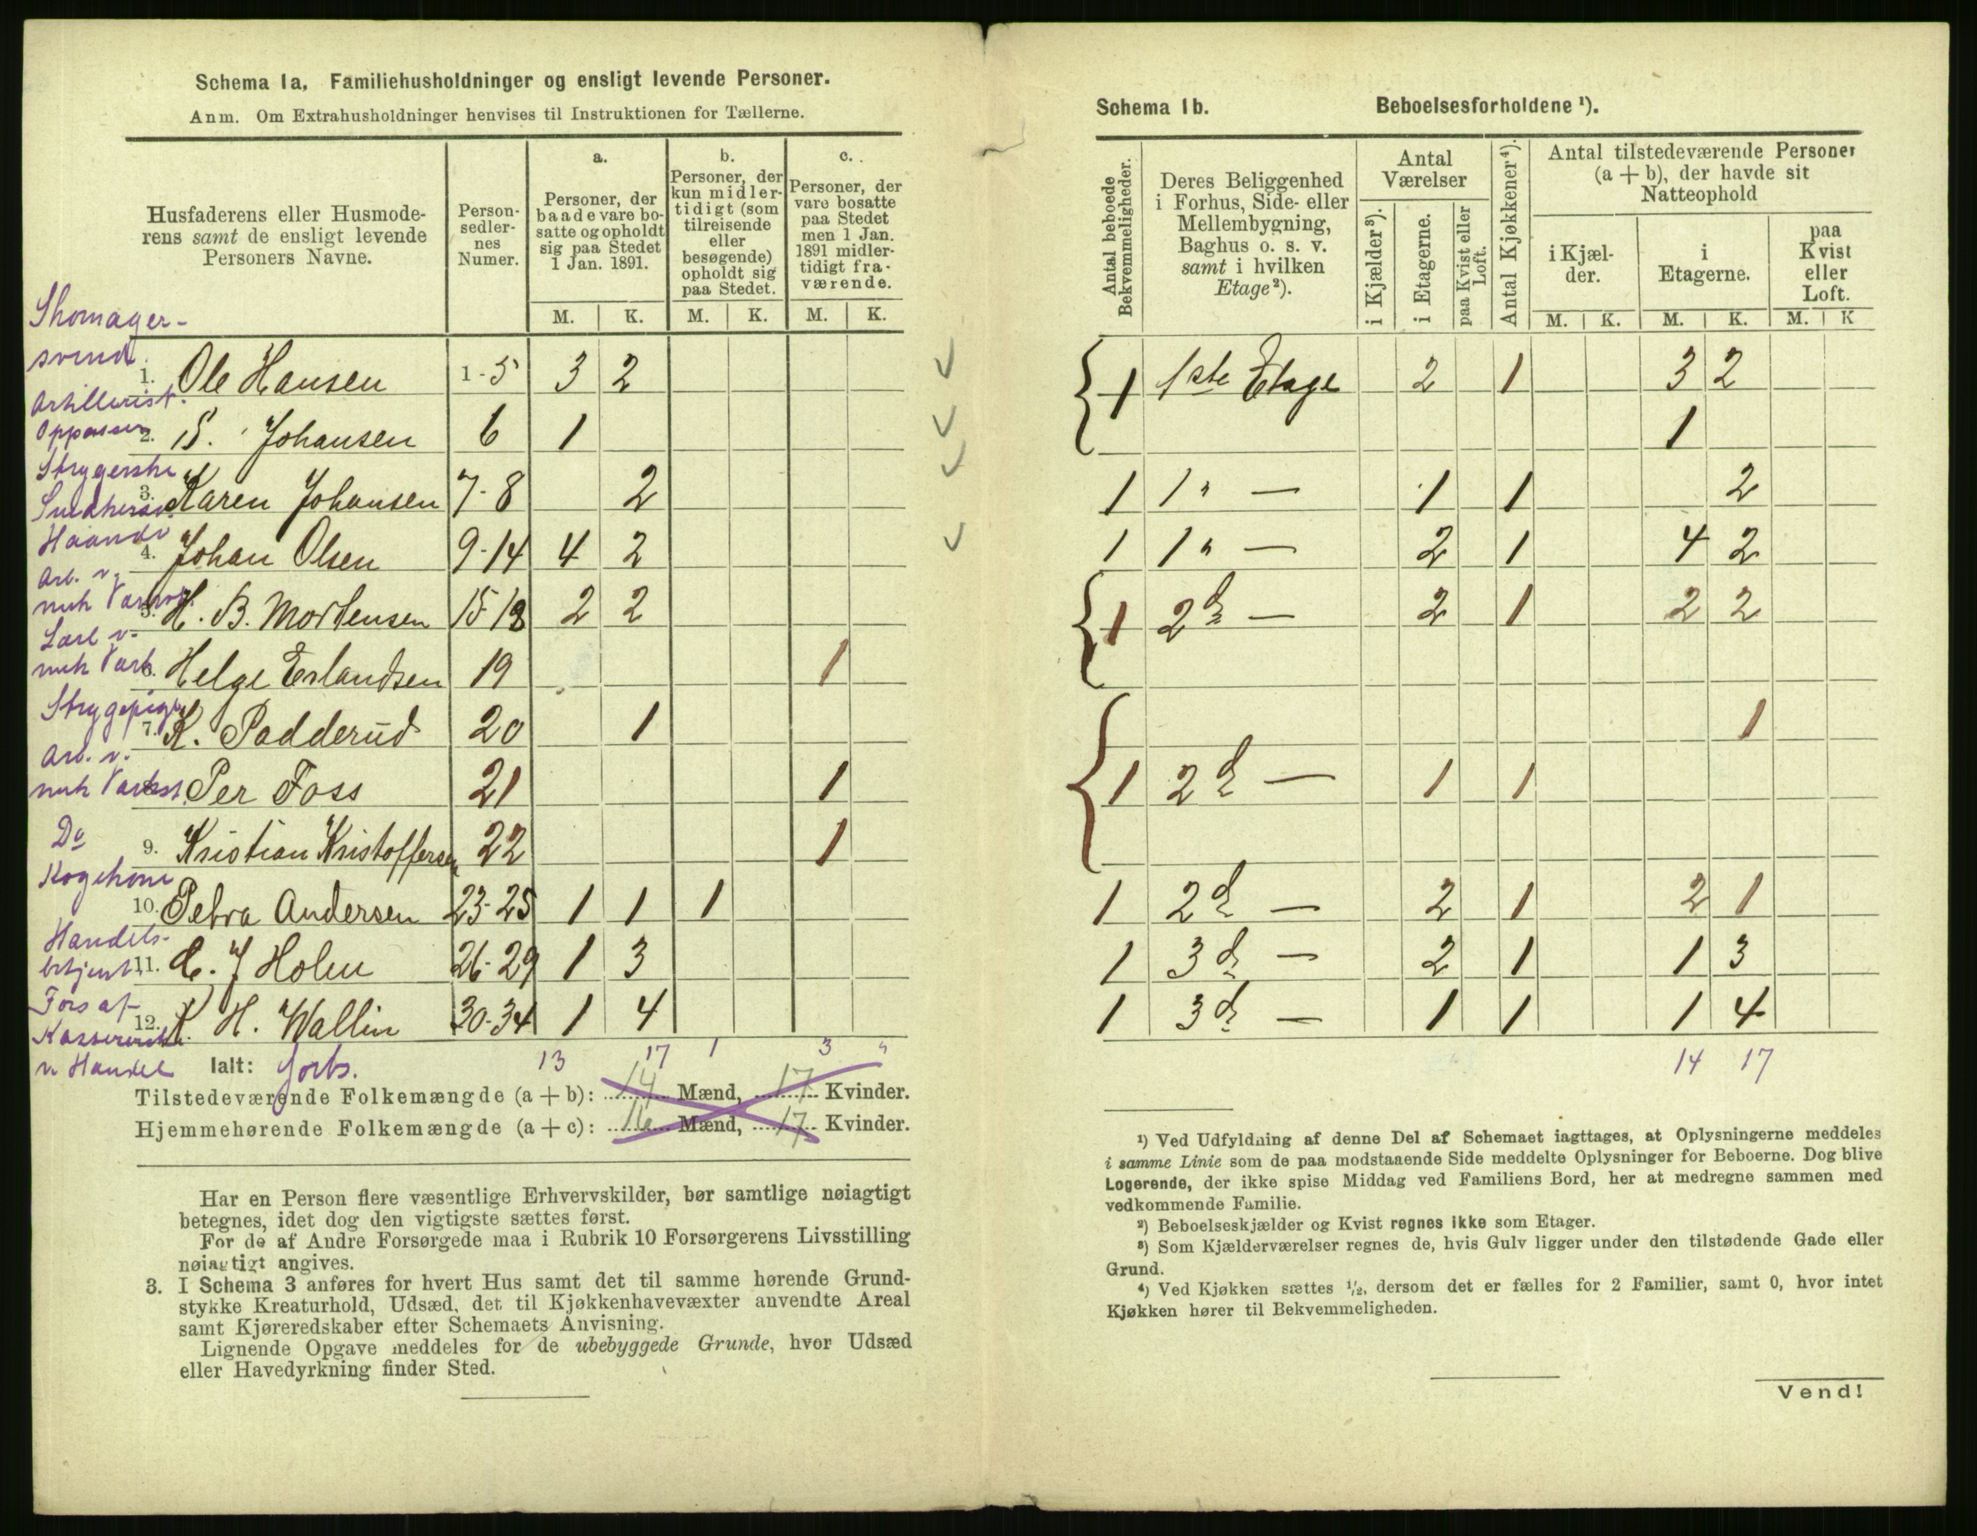 Schema 1a, Familiehusholdninger og ensligt levende Personer.
Anm. Om Extrahusholdninger henvises til Instruktionen for Tællerne.
Husfaderens eller Husmode-
rens samt de ensligt levende
Personers Navne.
Person-
sedler-
nes
Numer.
a.
Personer, der
baade vare bo-
satte og opholdt
sig paa Stedet
1 Jan. 1891.
b.
Personer, der
kun midler-
tidigt (som
tilreisende
eller
besøgende)
opholdt sig
paa Stedet.
c.
Personer, der
vare bosatte
paa Stedet
men 1 Jan.
1891 midler-
tidigt fra-
værende.
M. K. M. K. M. K.
Skomager-
svend.
1. Ole Hansen 1-5 3 2
Artillerist.
Oppasser
2. S. Johansen 6 1
Strygerske
3. Karen Johansen 7-8 2
Haandv
4. Johan Olsen 9-14 4 2
Arb. v.
mek
5. H. B. Mortensen 15-18 2 2
v.
mek Værk
6. Helge Erlandsen 19 1
Strygepige
7. K. Padderud 20 1
Arb. v.
mek Værkst.
8. Per Foss 21 1
Do
9. Kristian Kristoffersen 22 1
Kogekone
10. Petra Andersen 23-25 1 1 1
Handels-
betjent
11. C. J Holm 26-29 1 3
Fors af
12. K. H. Wallin 30-34 1 4
v. Handel
Ialt: forts. 13 17 1 3 "
Tilstedeværende Folkemængde (a + b): 14 Mænd, 17 Kvinder.
Hjemmehørende Folkemængde (a + c): 16 Mænd, 17 Kvinder.
Har en Person flere væsentlige Erhvervskilder, bør samtlige nøiagtigt
betegnes, idet dog den vigtigste sættes først.
For de af Andre Forsørgede maa i Rubrik 10 Forsørgerens Livsstilling
nøiagtigt angives.
3. I Schema 3 anføres for hvert Hus samt det til samme hørende Grund-
stykke Kreaturhold, Udsæd, det til Kjøkkenhavevæxter anvendte Areal
samt Kjøreredskaber efter Schemaets Anvisning.
Lignende Opgave meddeles for de ubebyggede Grunde, hvor Udsæd
eller Havedyrkning finder Sted.
Schema 1b. Beboelsesforholdene ¹).
Antal beboede
Bekvemmeligheder.
Deres Beliggenhed
i Forhus, Side- eller
Mellembygning,
Baghus o. s. v.
samt i hvilken
Etage²).
Antal
Værelser
i Kjælder³).
i Etagerne.
paa Kvist eller
Loft.
Antal Kjøkkener⁴).
Antal tilstedeværende Personer
(a + b), der havde sit
Natteophold
i Kjæl-
der.
i
Etagerne.
paa
Kvist
eller
Loft.
M. K. M. K. M. K
1 1ste Etage 2 1 3 2
1
1 1 " — 1 1 2
1 1 " — 2 1 4 2
1 2d — 2 1 2 2
1
1 2d — 1 1
1 2d — 2 1 2 1
1 3d — 2 1 1 3
1 3d — 1 1 1 4
14 17
¹) Ved Udfyldning af denne Del af Schemaet iagttages, at Oplysningerne meddeles
i samme Linie som de paa modstaaende Side meddelte Oplysninger for Beboerne. Dog blive
Logerende, der ikke spise Middag ved Familiens Bord, her at medregne sammen med
vedkommende Familie.
²) Beboelseskjælder og Kvist regnes ikke som Etager.
³) Som Kjælderværelser regnes de, hvis Gulv ligger under den tilstødende Gade eller
Grund.
⁴) Ved Kjøkken sættes ¹/₂, dersom det er fælles for 2 Familier, samt 0, hvor intet
Kjøkken hører til Bekvemmeligheden.
Vend!